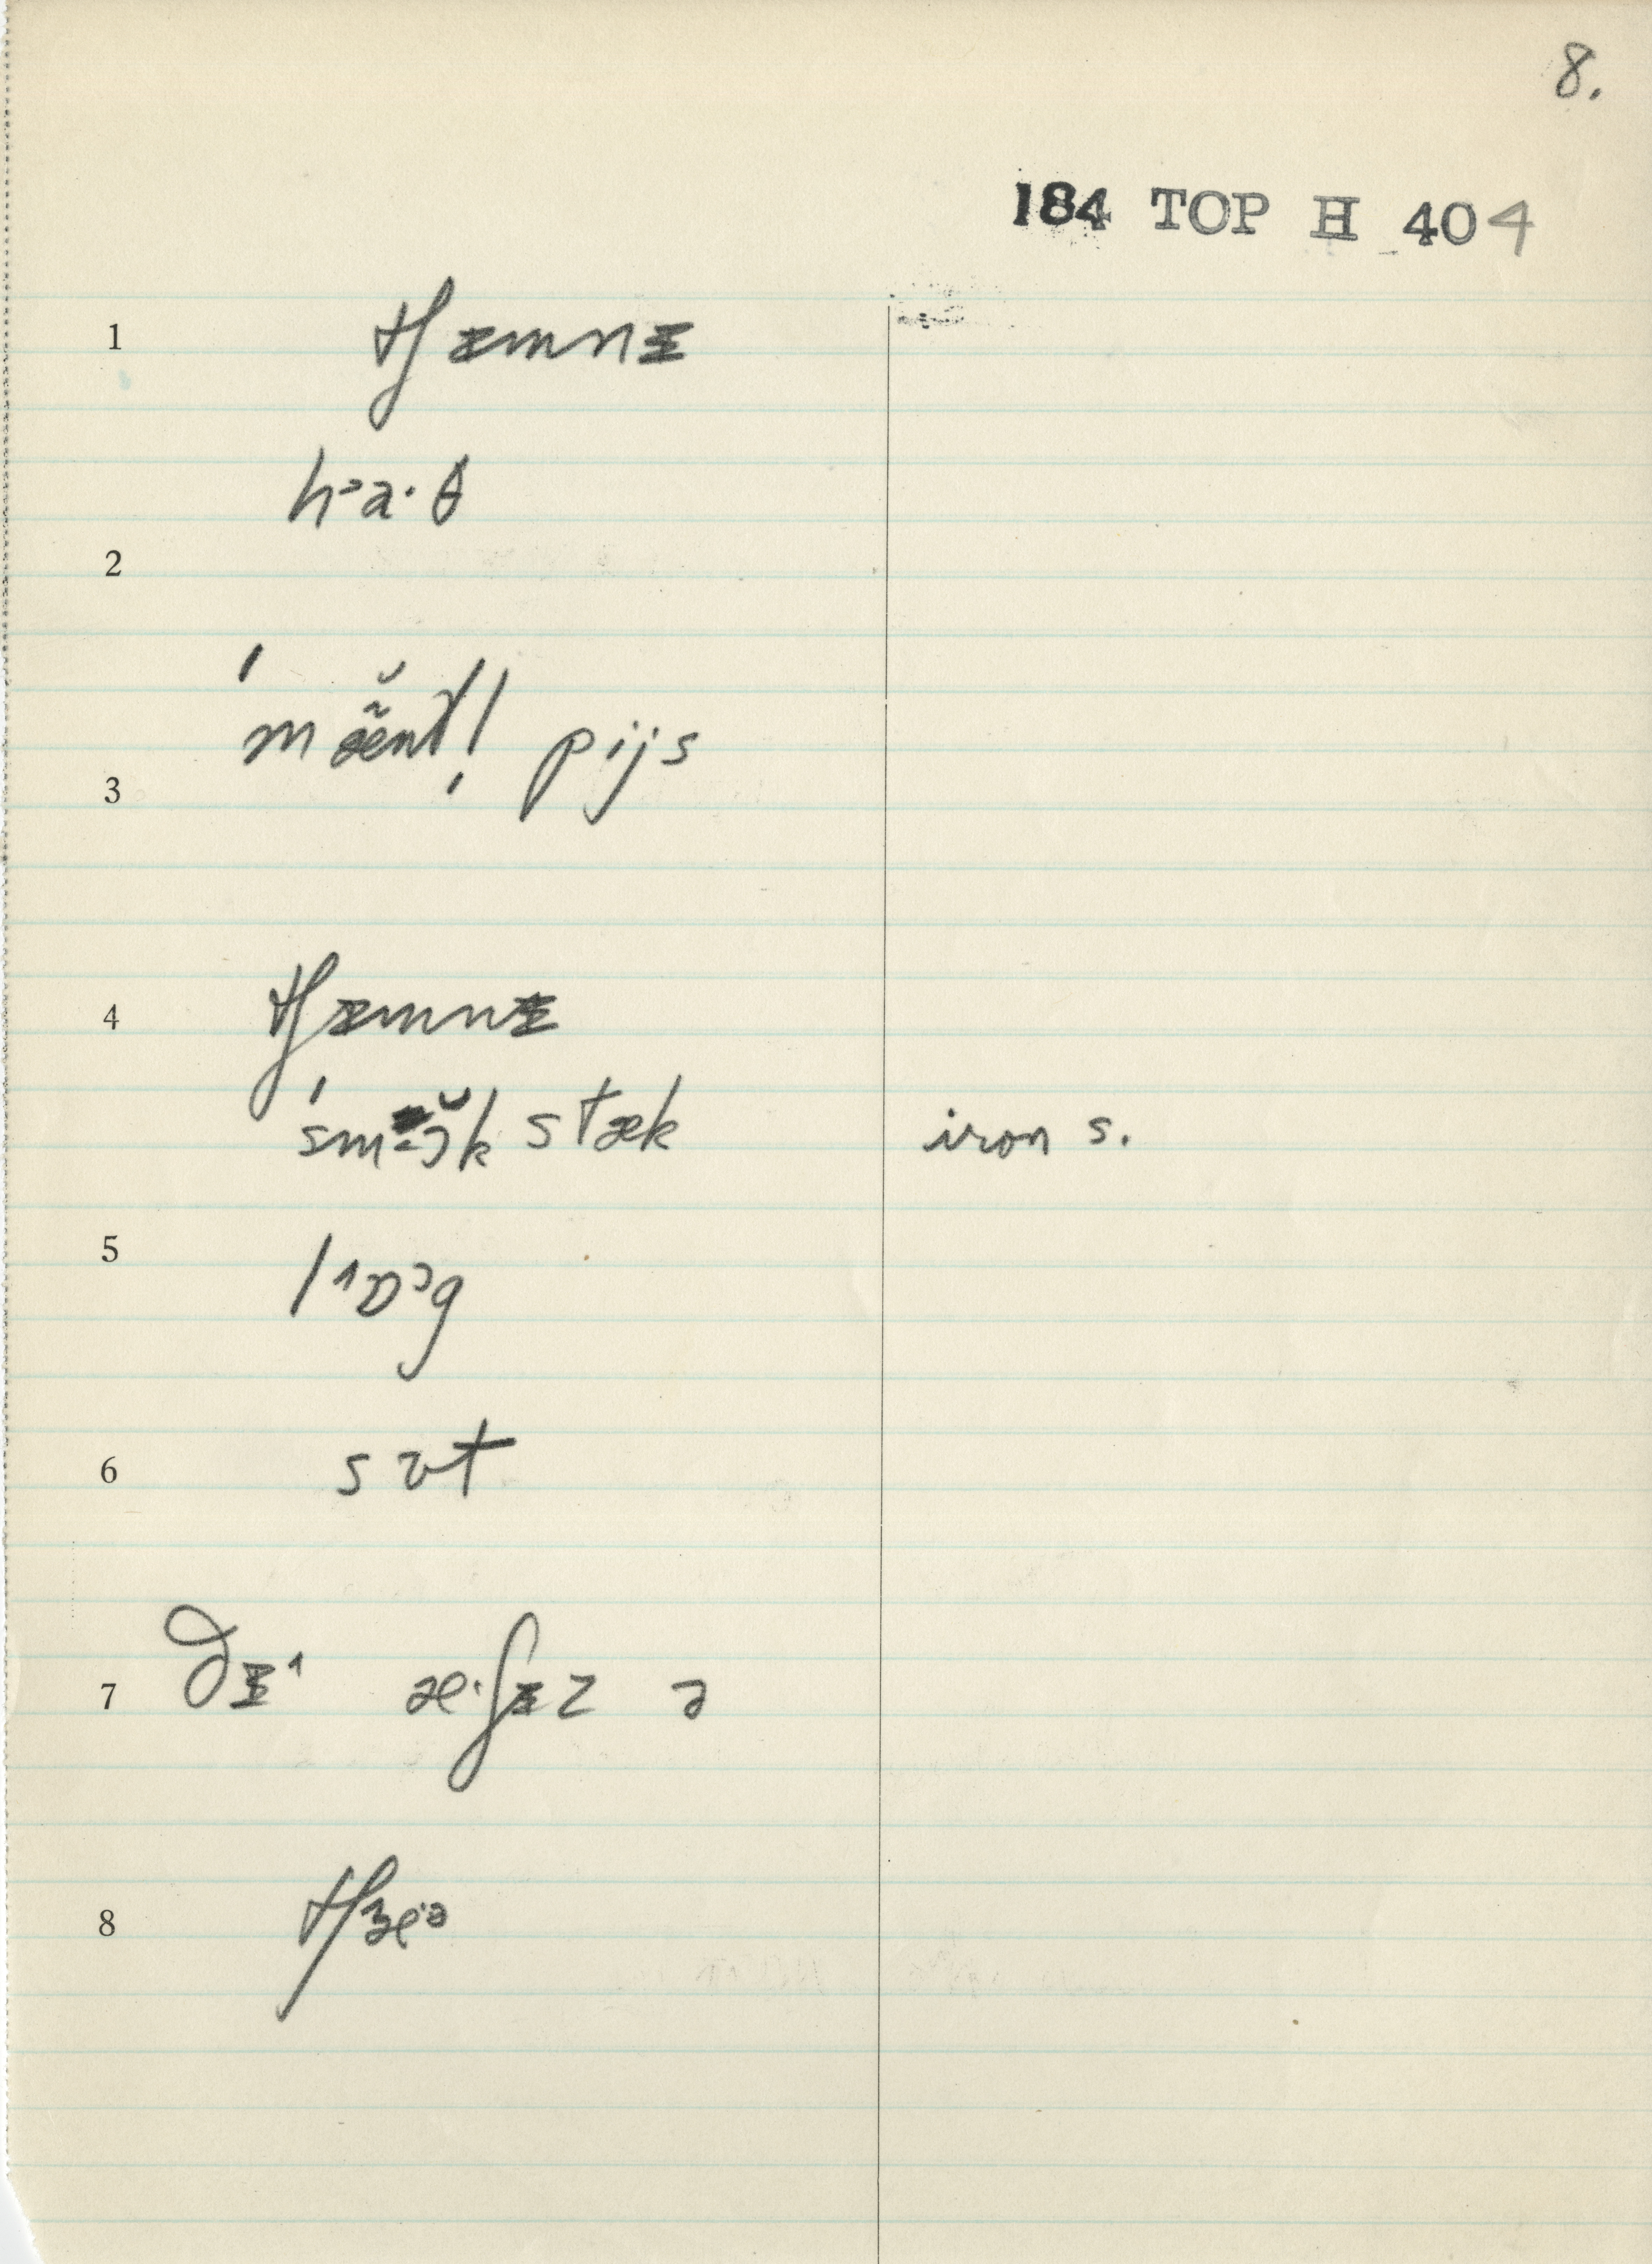 8.
184 TOP H 404
1 tʃɪmnɪ
hᵊa·θ
2
ˈmæ̃ntl̩ pijs
3
4 tʃɪmnɪ
ˈsmɔ̆k stæk iron s.
5 lɒᵊg
6 sʊt
7 ðɪ æ·ʃɪz ə
8 tʃɛ·ə